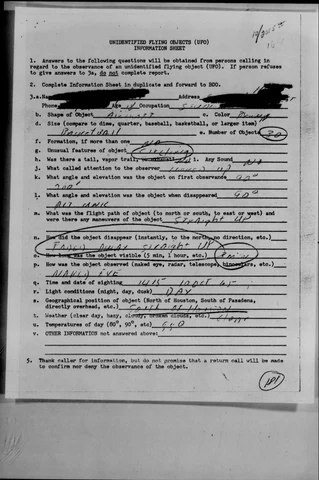 UNIDENTIFIED FLYING OBJECTS (UFO)
INFORMATION SHEET
1. Answers to the following questions will be obtained from persons calling in
regard to the observance of an unidentified flying object (UFO). If person refuses
to give answers to 3a, do not complete report.
2. Complete Information Sheet in duplicate and forward to BDO.
3. a. Name Address
Phone Age of Occupation
b. Shape of Object Aircraft c. Color
d. Size (compares to dime, quarter, baseball, basketball, or larger item)
Basketball e. Number of Objects 30
f. Formation, if more than one N/A
g. Unusual features of object
h. Was there a tail, vapor trail, or exhaust i. Any Sound NO
j. What called attention to the observer Looked up
k. What angle and elevation was the object on first observance 90°
l. What angle and elevation was object when disappeared 90°
m. What was the flight path of object (to north or south, to east or west) and
were there any maneuvers of the object STRAIGHT UP
n. How did the object disappear (instantly, to the north, no direction, etc.)
FADED AWAY STRAIGHT UP
o. How long was object visible (5 min, 1 hour, etc.)
p. How was the object observed (naked eye, radar, telescope, binoculars, etc.)
NAKED EYE
q. Time and date of sighting 1415
r. Light conditions (night, day, dusk) DAY
s. Geographical position of object (North of Houston, South of Pasadena,
directly overhead, etc.) South of Houston
t. Weather (clear day, hazy, cloudy, broken clouds, etc.) Clear
u. Temperatures of day (80°, 90°, etc)
v. OTHER INFORMATION not answered above:
5. Thank caller for information, but do not promise that a return call will be made
to confirm nor deny the observance of the object.